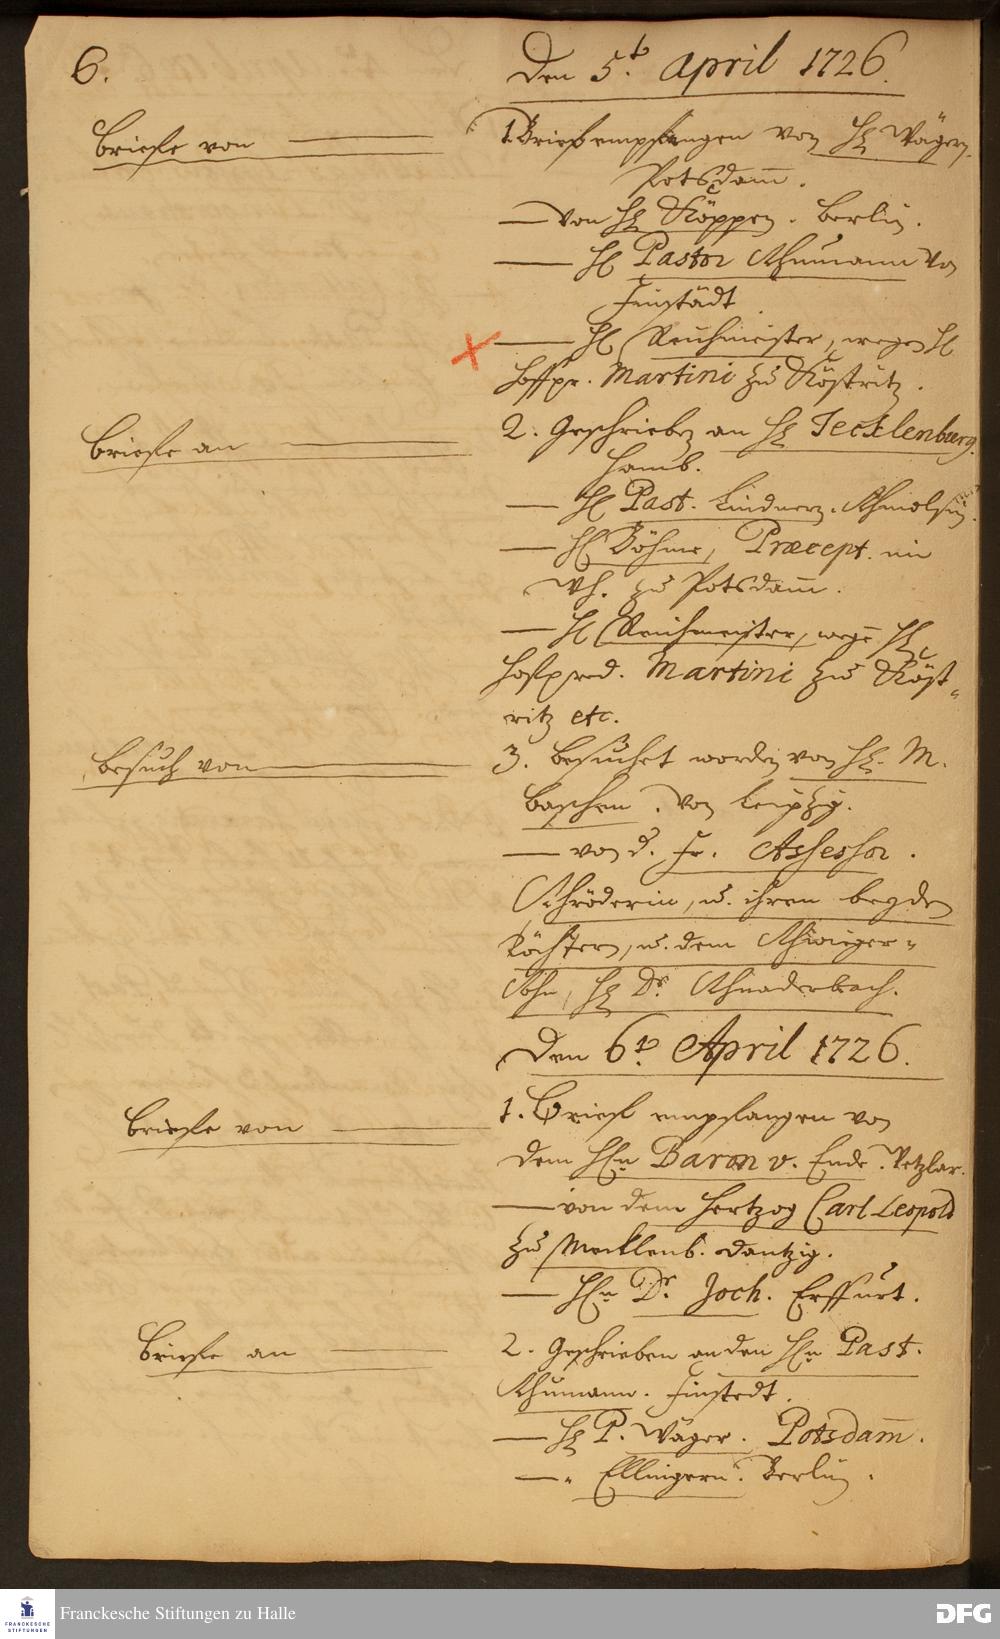 6.
Den 5t. April 1726.
Briefe von
1. Brief empfangen von HE Wägern.
Potsdam̄.
— von HE Köppen. Berlin.
— HE Pastor Schumann von
Finstädt
— HE Reichmeister, wegen HE
Hoffpr. Martini zu Köstritz.
Briefe an
2. Geschrieben an HE Tecklenburg.
Hamb.
— HE Past. Lindnern.
— HE Böhme, Præcept. im
Wh. zu Potsdam̄.
— HE Reichmeister, wegē HE
Hofpred. Martini zu Köst-
ritz etc.
Besuch von
3. Besuchet worden von HE. M.
Baschen. von Leipzig.
— von d. Fr. Assessor.
Schröderin, u. ihren beyden
Töchtern, u. dem Schwieger-
Sohn, HE Dr. Schaderbach.
Den 6t. April 1726.
Briefe von
1. Brief empfangen von
dem HEn Baron v. Ende. Wetzlar.
— von dem Hertzog Carl Leopold
zu Mecklenb. Dantzig.
— HEn Dr. Joch. Erffurt.
Briefe an
2. Geschrieben an den HEn Past.
Schumann. Finstedt.
— HE P. Wäger. Potsdam̄.
— " Ellingern. Berlin.
FRANCKESCHE STIFTUNGEN
Franckesche Stiftungen zu Halle
DFG